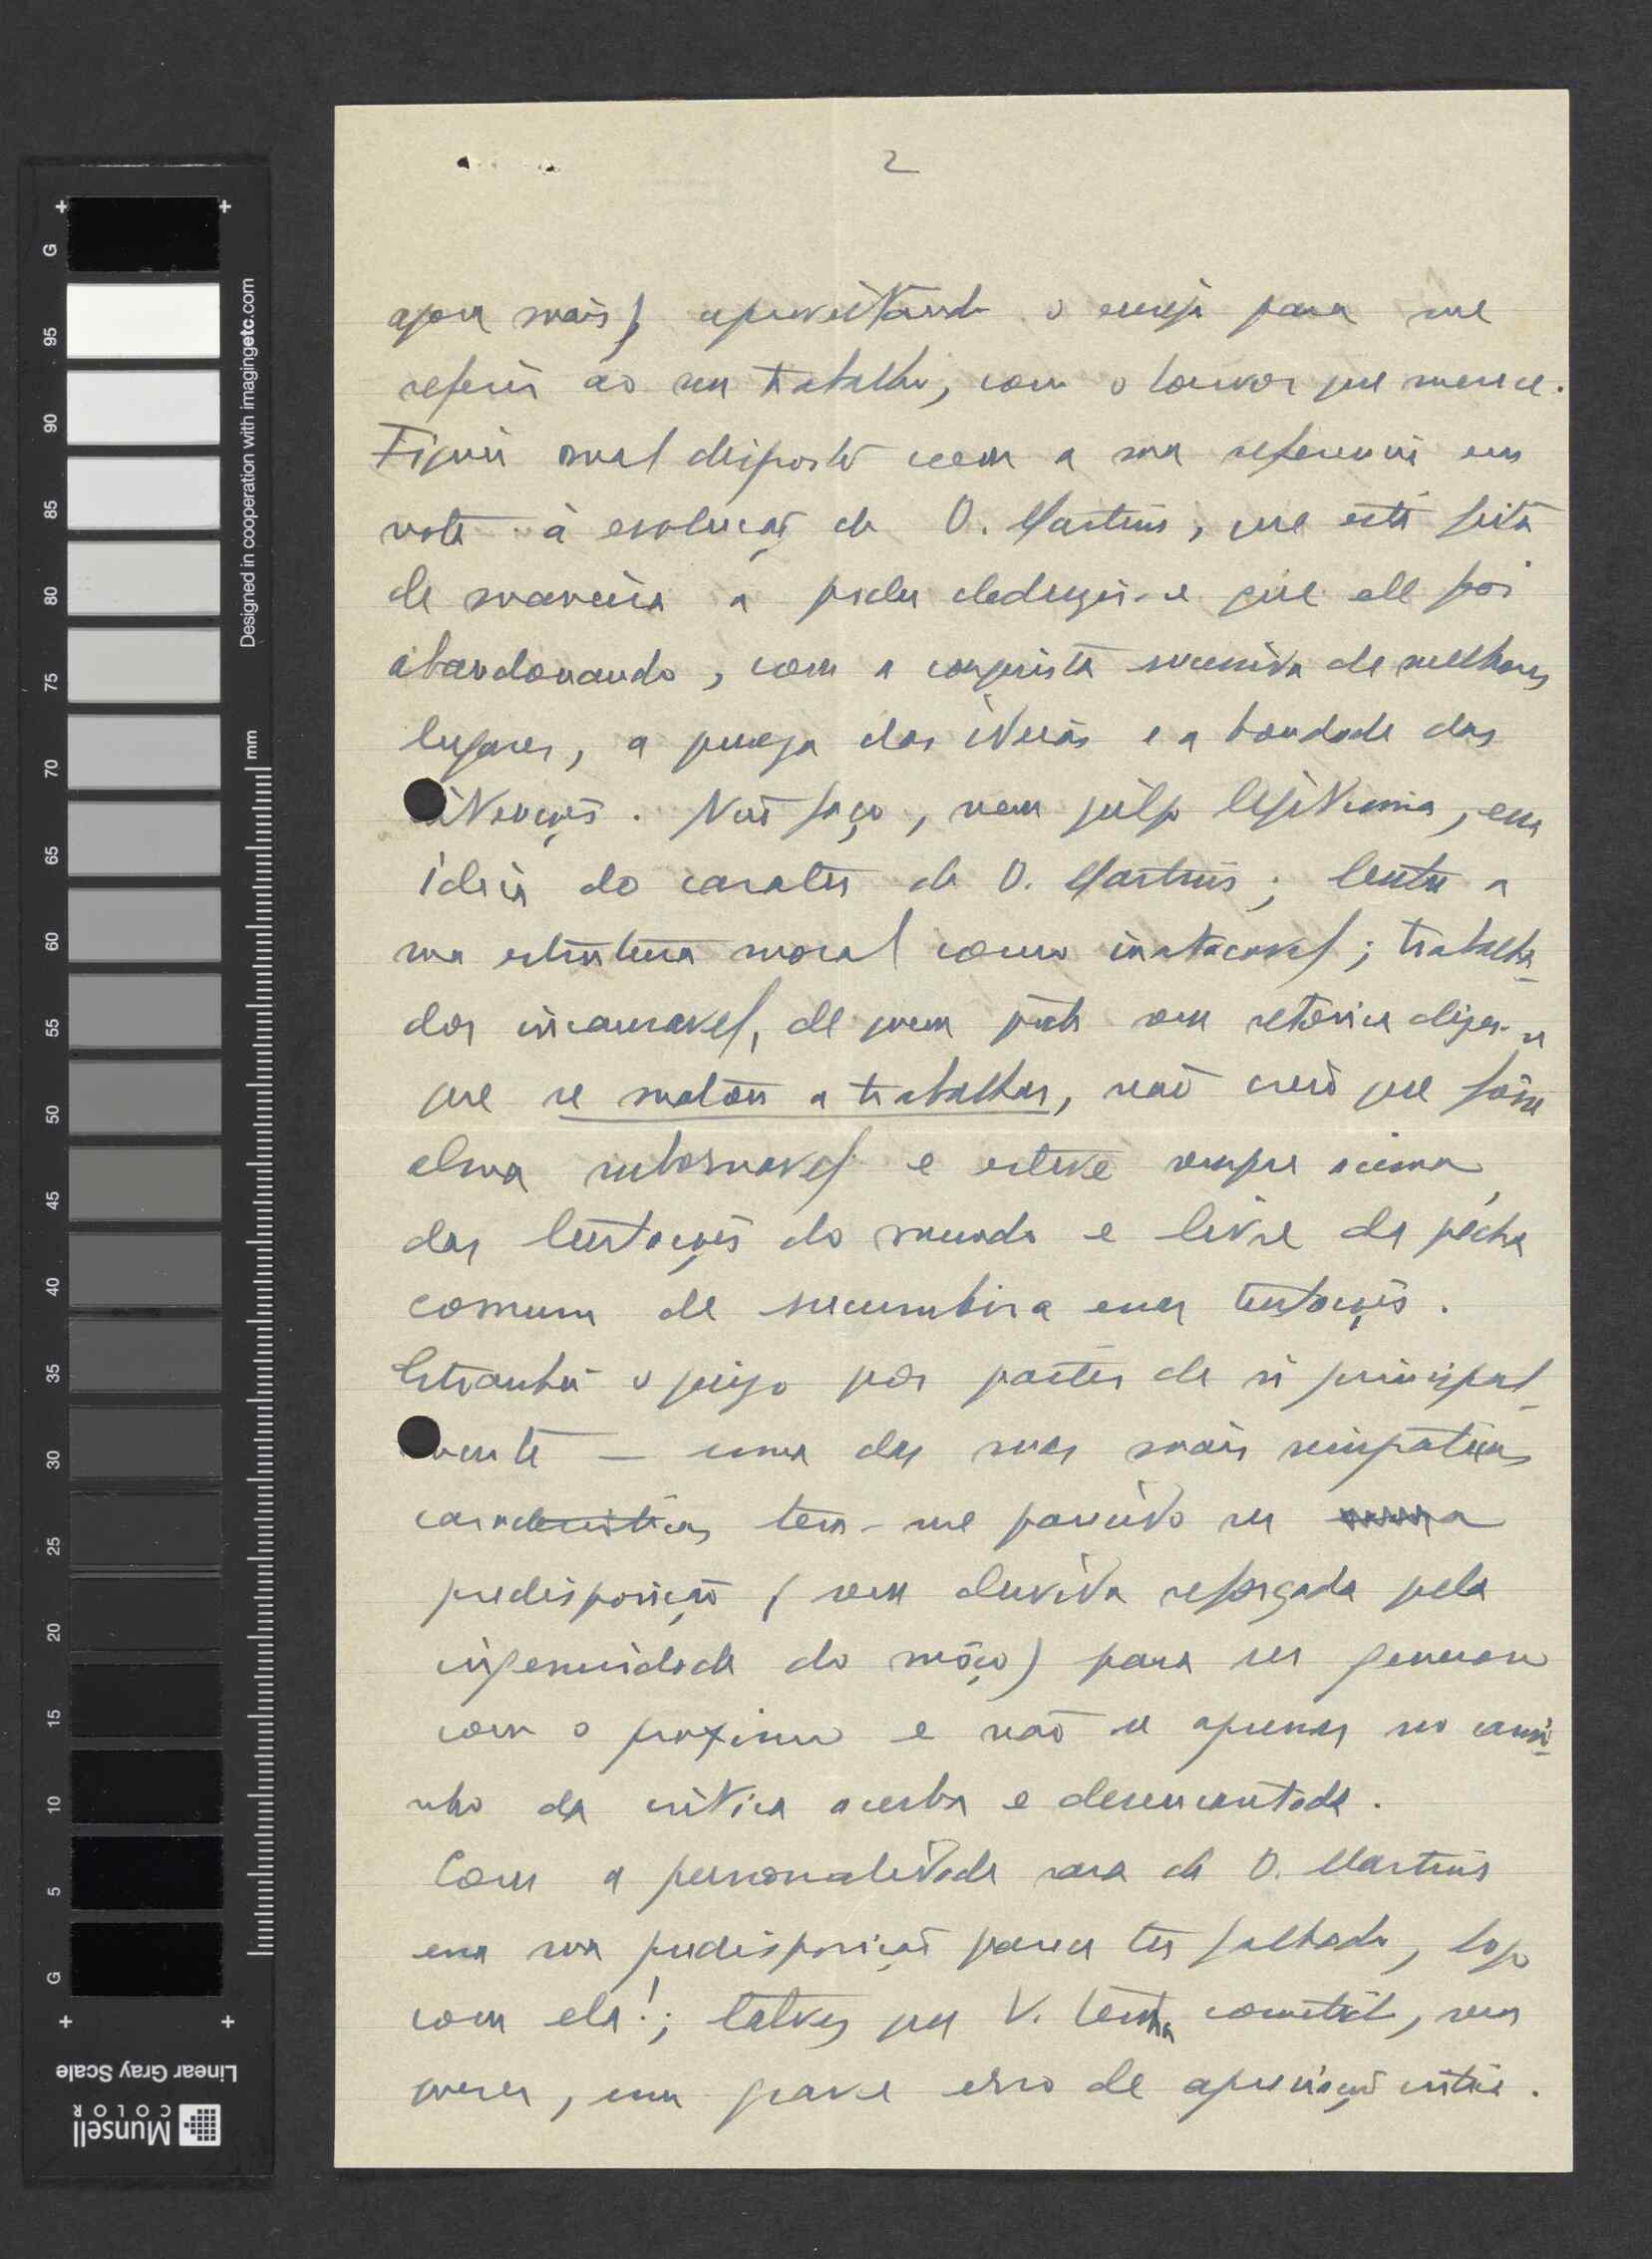 2
agora mais) aproveitando o ensejo para me
referir ao seu trabalho, com o louvor que merece.
Fiquei mal disposto com a sua referencia em
nota à evolução de O. Martins, que está feita
de maneira a poder deduzir-se que ele foi
abandonando, com a conquista sucessiva de melhores
lugares, a pureza das ideias e a bondade das
intenções. Não faço, nem julgo legitima, essa
ideia do carater de O. Martins; tenho a
sua estrutura moral como inatacavel; trabalha-
dor incansavel, de quem póde sem retórica dizer-se
que se matou a trabalhar, não creio que fôsse
alma subornavel e esteve sempre acima
das tentações do mundo e livre da pécha
comum de sucumbir a essas tentações.
Estranhei o juizo por partir de si principal-
mente — uma das suas mais simpaticas
caracteristicas tem-me parecido ser a
predisposição (sem duvida reforçada pela
ingenuidade do môço) para ser generoso
com o proximo e não se apressar no cami-
nho da critica acerba e desencantada.
Com a personalidade rara de O. Martins
essa sua predisposição parece ter falhado, logo
com ela!; talvez que V. tenha cometido, sem
querer, um grave erro de apreciação critica.
G 95 90 85 80 75 70 65 60 55 50 45 40 35 30 25 20 15 10 5 G
mm
Designed in cooperation with imagingetc.com
Linear Gray Scale
Munsell
COLOR